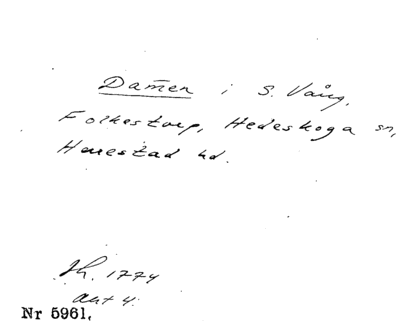 Dam̄en i S. Vång,
Folkestorp, Hedeskoga sn,
Herrestad hd.
Sk. 1774
akt 4.
Nr 5961.